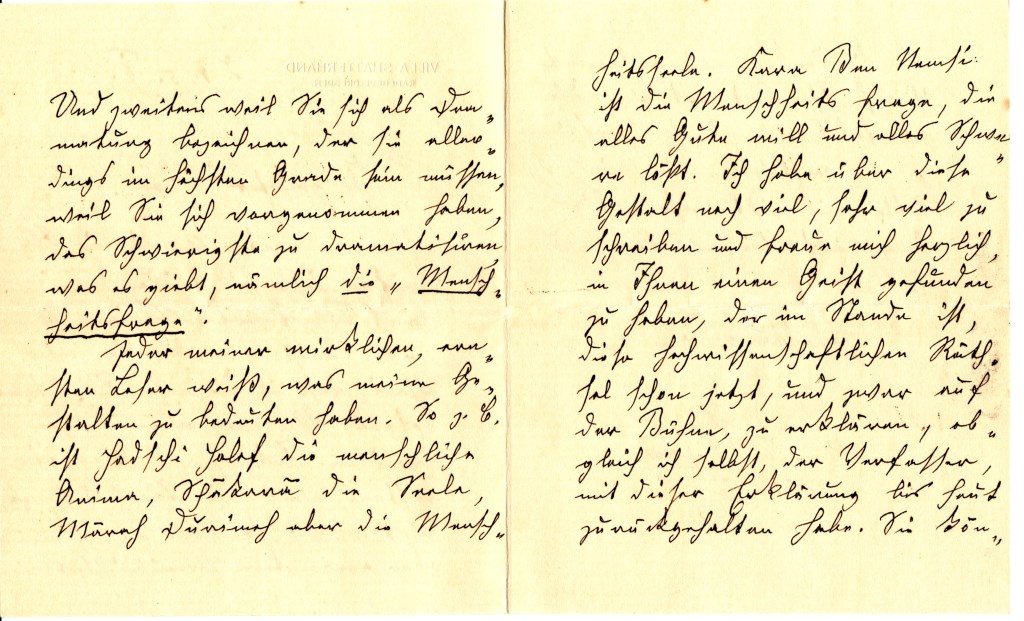 Und zweitens weil Sie sich als Dra„
maturg bezeichnen, der sie aller„
dings im höchsten Grade sein müssen,
weil Sie sich vorgenommen haben,
das Schwierigste zu dramatisiren,
was es giebt, nämlich die „Mensch„
heitsfrage“.
Jeder meiner wirklichen, ern„
sten Leser weiß, was meine Ge„
stalten zu bedeuten haben. So z. B.
ist Hadschi Halef die menschliche
Anima, Schakara die Seele,
Marah Durimeh aber die Mensch„
heitsseele. Kara Ben Nemsi
ist die Menschheitsfrage, die
alles Gute will und alles Schwe„
re löst. Ich habe über diese
Gestalt noch viel, sehr viel zu
schreiben und freue mich herzlich,
in Ihnen einen Geist gefunden
zu haben, der im Stande ist,
diese hochwissenschaftlichen Räth„
sel schon jetzt, und zwar auf
der Bühne, zu erklären, ob„
gleich ich selbst, der Verfasser,
mit dieser Erklärung bis heut
zurückgehalten habe. Sie kön„
VILLA SHATTERHAND